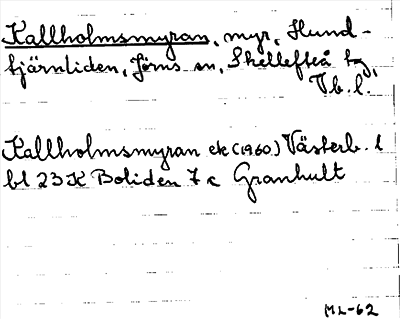 Kallholmsmyran, myr, Hund-
tjärnliden, Jörns sn, Skellefteå tg
Vb. l.
Kallholmsmyran ek (1960) Västerb. l
bl 23 K Boliden 7 c Granhult
ML-62